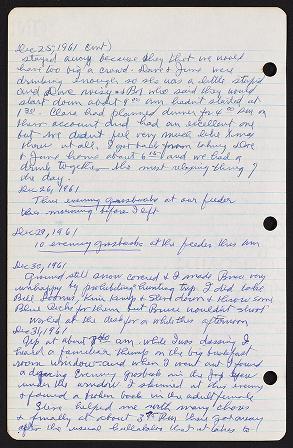 Dec 25, 1961 Cont)
stayed away because they that we would
have too big a crowd. Dave & Jane were
drinking enough so she was a little stupid
and Dave noisy & Bob who said they would
start down about 9:00 am hadn't started at
1:30. Clara had planned dinner for 4:00 PM on
their account and had an excellent one
but we didn't feel very much like being
there at all. I got back from taking
& Jane home about 6:00 and we had a
drink together the most relaxing thing of
the day.
Dec 26, 1961
Three evening grosbeaks at our feeder
this morning before I left
Dec 29, 1961
10 evening grosbeaks at the feeder this am
Dec 30, 1961
Ground still snow covered & I made Bruce very
unhappy by prohibiting hunting trip. I did take
Bill down & throw some
Blue Rocks for them but Bruce wouldn't shoot
Worked at the desk for a while this afternoon
Dec 31, 1961
Up at about am. While I was dressing I
heard a familiar thump on the big breakfast
room window and when I went out I found
a dying Evening grosbeak in the
under the window. I skinned it this evening
& found a broken back in the adult female
Steve helped me with many chores
& finally at about PM then got away
after the usual that it takes to